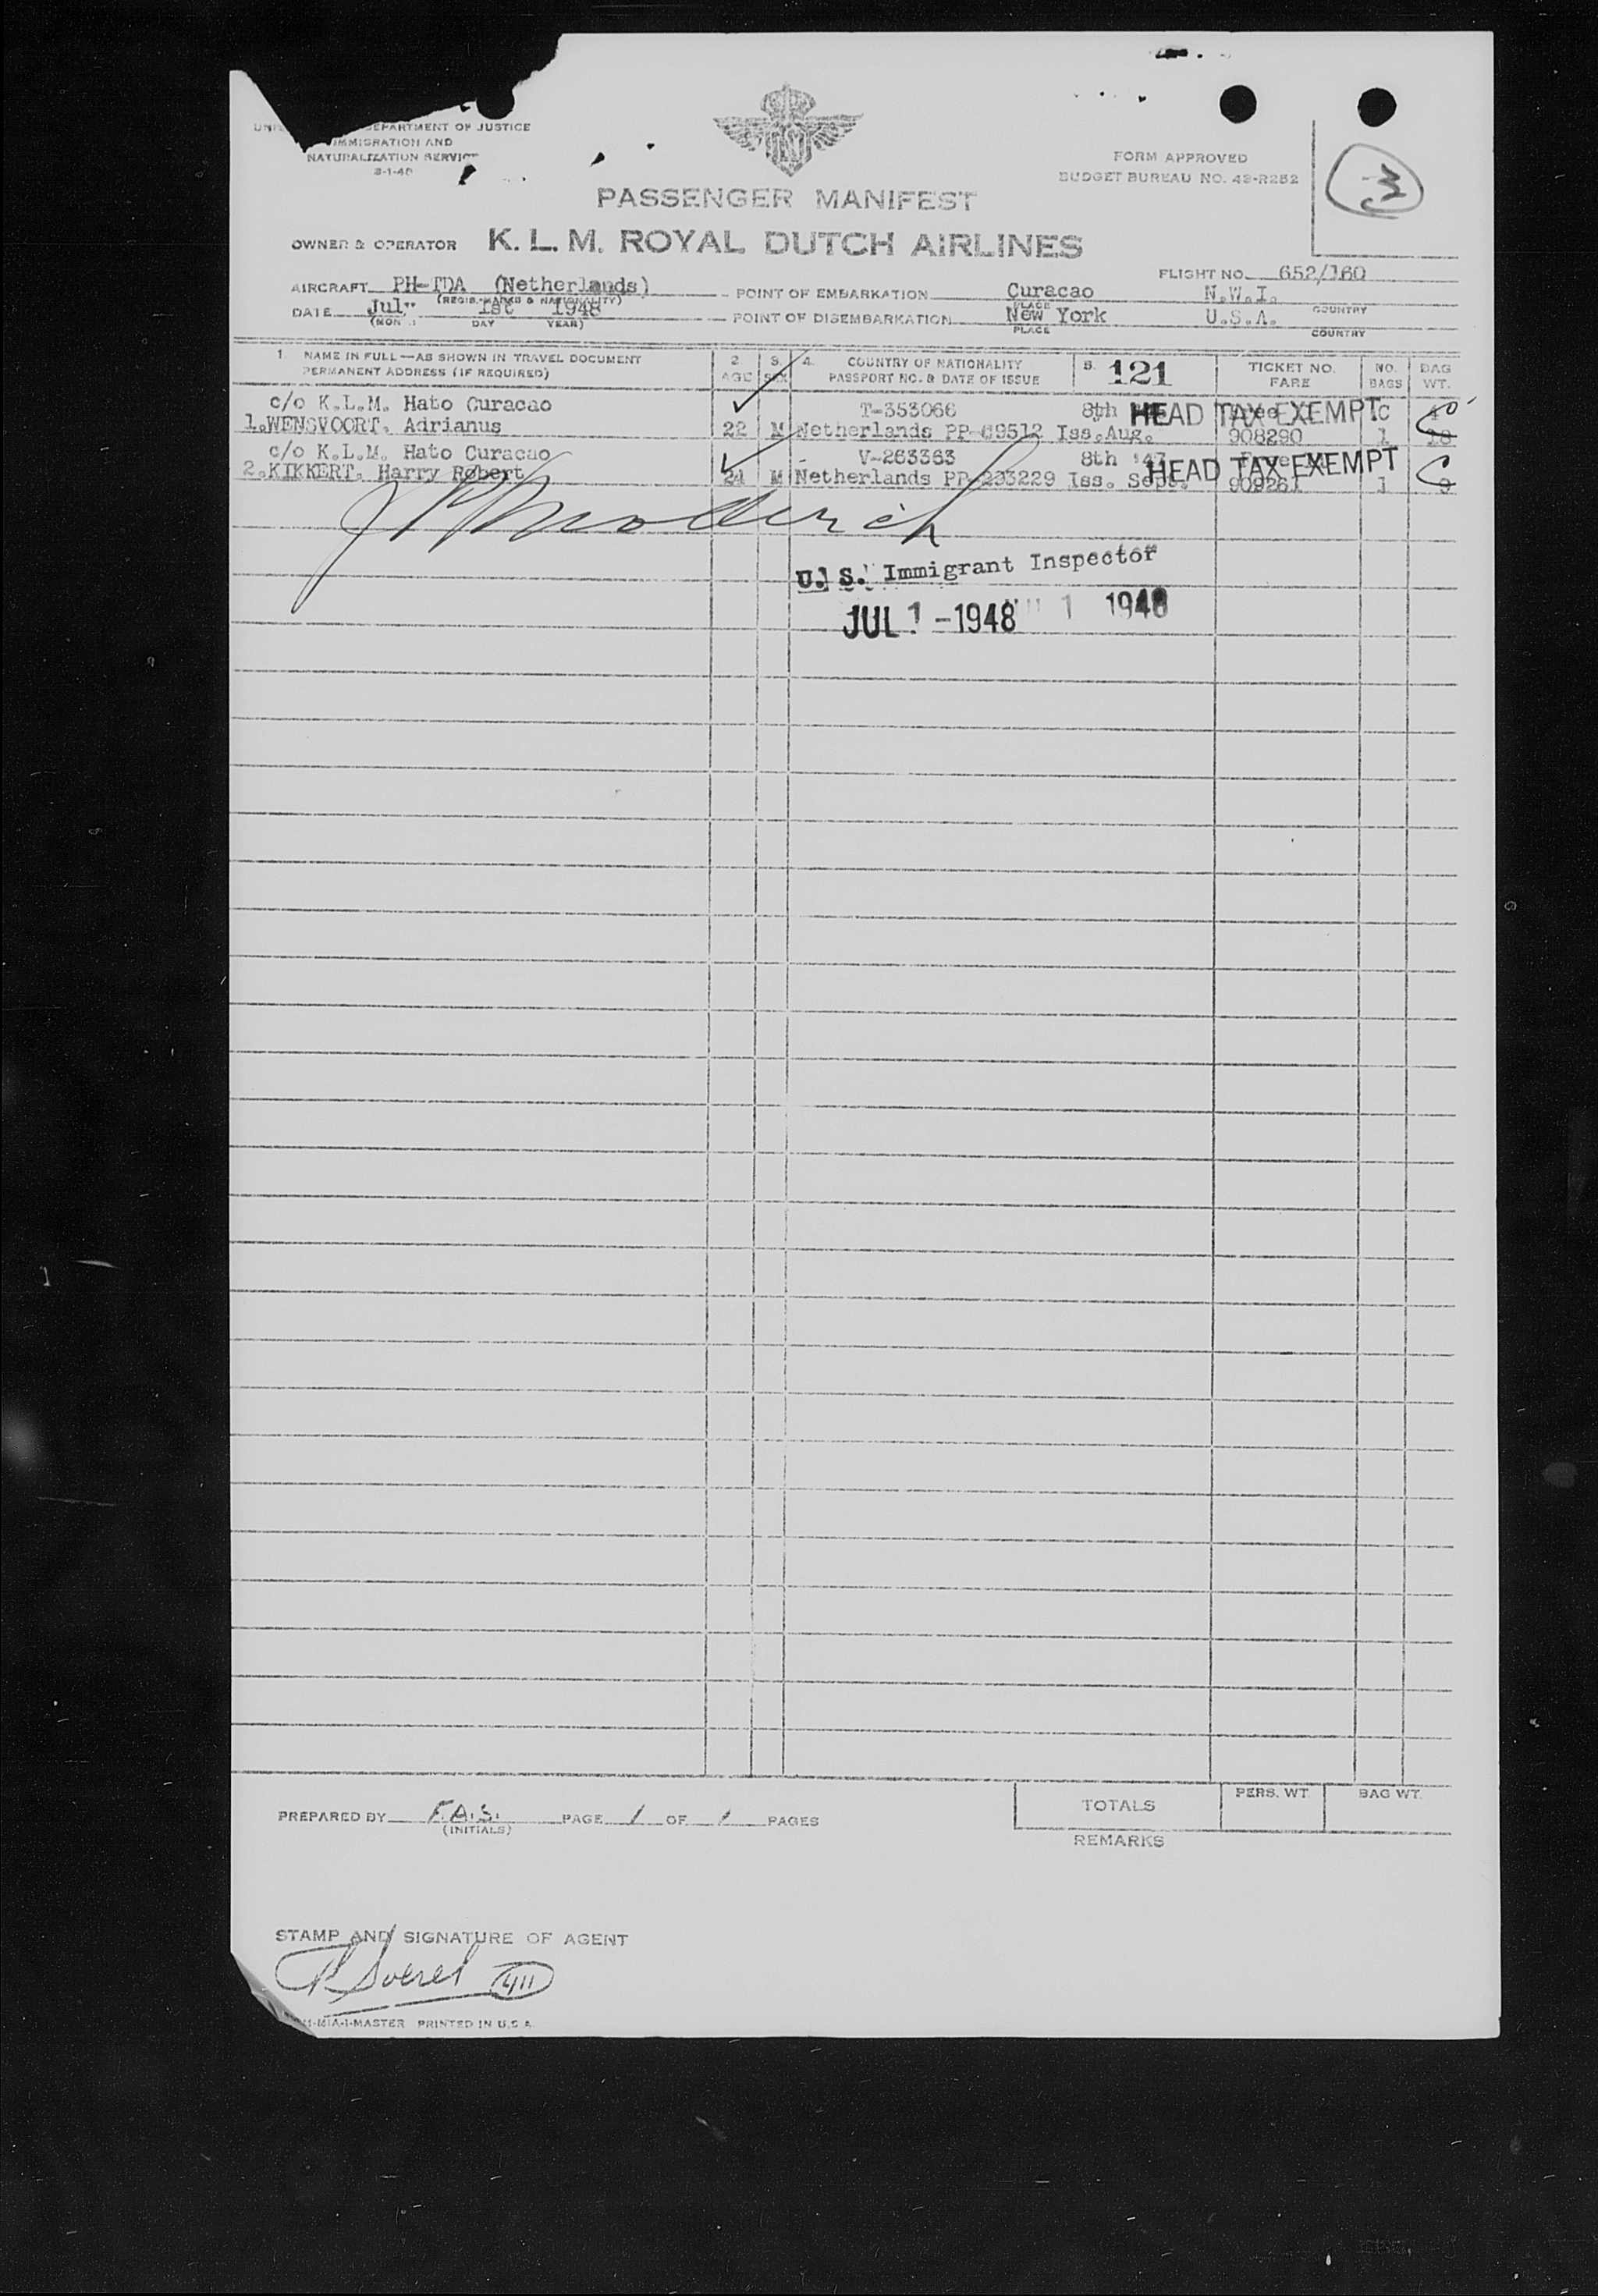 DEPARTMENT OF JUSTICE
IMMIGRATION AND
NATURALIZATION SERVICE
FORM APPROVED
BUDGET BUREAU NO. 43-R252
3
PASSENGER MANIFEST
OWNER & OPERATOR K.L.M. ROYAL DUTCH AIRLINES
FLIGHT NO. 652/160
AIRCRAFT PH-TDA (Netherlands) POINT OF EMBARKATION Curacao N.W.I.
(REGIS. MARKS & NATIONALITY) PLACE COUNTRY
DATE July 1st 1948 POINT OF DISEMBARKATION New York U.S.A.
(MON.) DAY YEAR) PLACE COUNTRY
1. NAME IN FULL—AS SHOWN IN TRAVEL DOCUMENT 2. 3. 4. COUNTRY OF NATIONALITY 5. 121 TICKET NO. NO. BAG
PERMANENT ADDRESS (IF REQUIRED) AGE SEX PASSPORT NO. & DATE OF ISSUE FARE BAGS WT.
c/o K.L.M. Hato Curacao T-353066 8th HEAD TAX EXEMPT
1.WENSVOORT, Adrianus 22 M Netherlands PP-69512 Iss.Aug. 908290 1 18
c/o K.L.M. Hato Curacao V-263363 8th '47 HEAD TAX EXEMPT
2.KIKKERT, Harry Robert 24 M Netherlands PP-293229 Iss. Sept. 909261 1 9
U. S. Immigrant Inspector
JUL 1 -1948 1 1948
PREPARED BY F.A.S. PAGE 1 OF 1 PAGES
(INITIALS)
TOTALS PERS. WT. BAG WT.
REMARKS
STAMP AND SIGNATURE OF AGENT
411
MIA-1-MASTER PRINTED IN U.S.A.